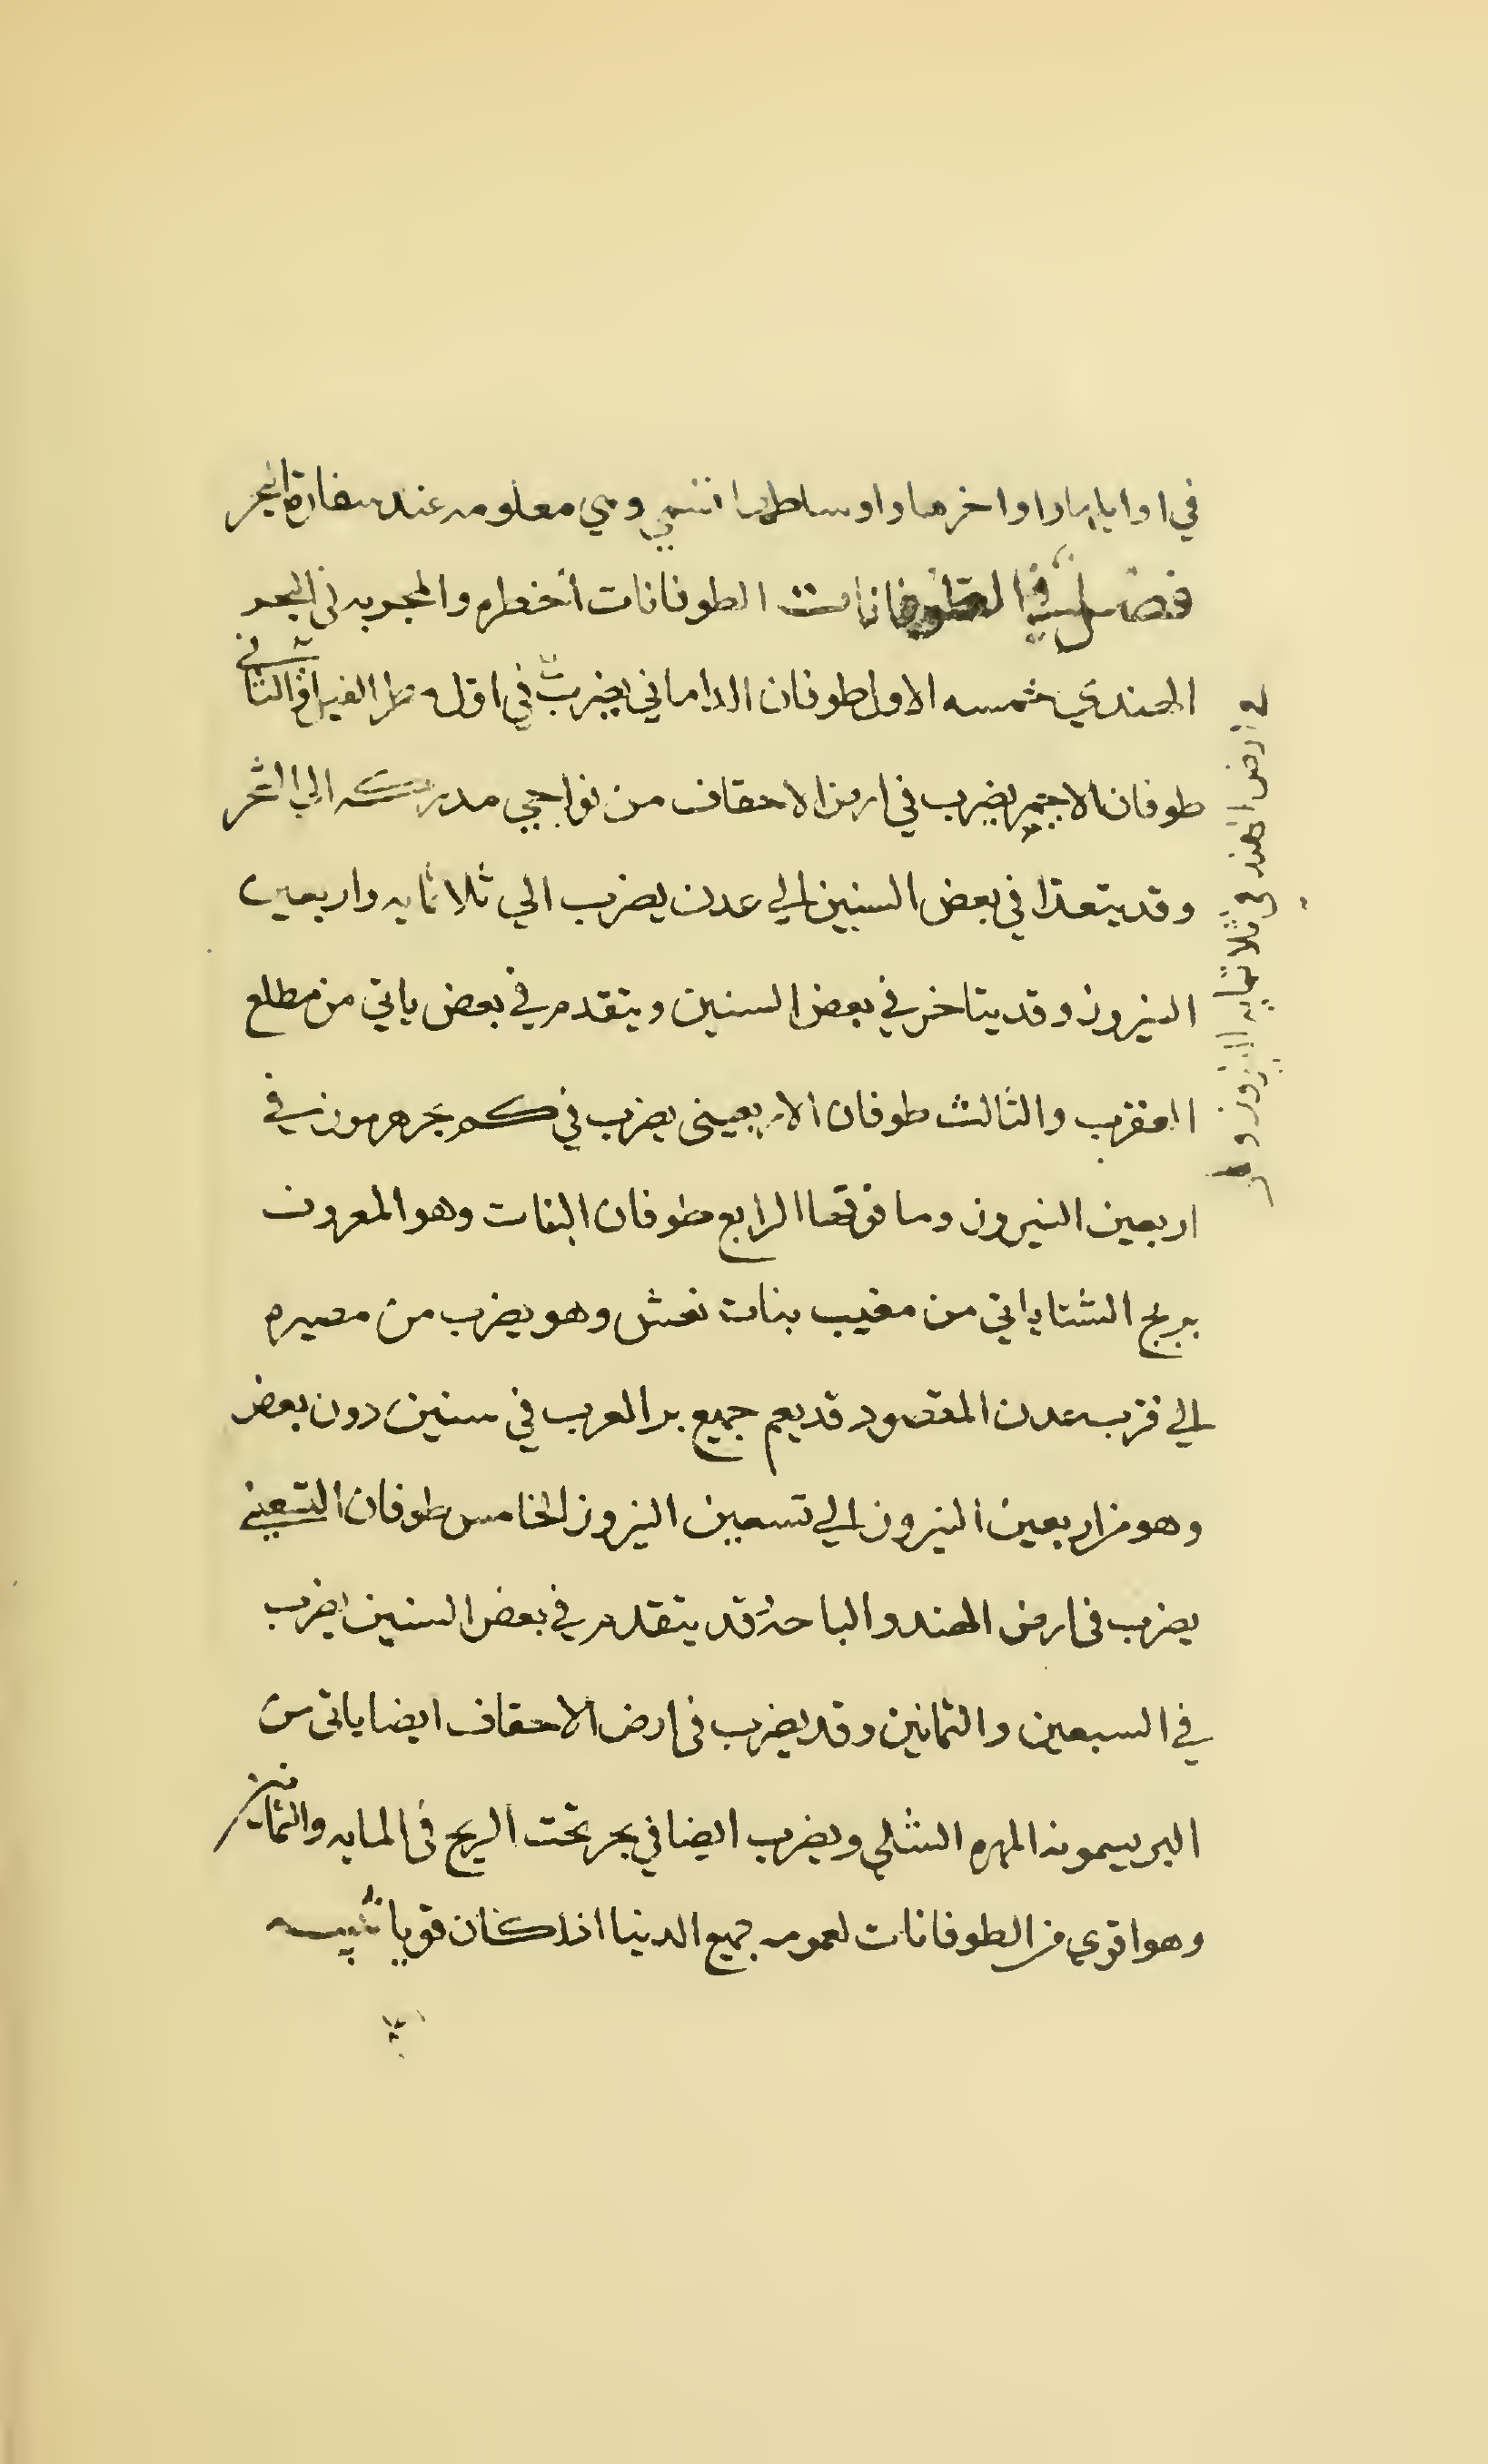 في اوايلها واواخرها واوساطها انتهى وهي معلومه عند سفارة البحر
فصل في الطوفانات الطوفانات أخطره والمجربه في البحر
الهندي خمسه الاول طوفان الداماني يضرب في اول مطر الفيل والثاني
طوفان الاحيمر يضرب في ارض الاحقاف من نواحي مدركه الي الشحر
وقد يتعدا في بعض السنين الي عدن يضرب الي ثلاثمايه واربعين
النيروز وقد يتاخر في بعض السنين ويتقدم في بعض ياتي من مطلع
العقرب والثالث طوفان الاربعيني يضرب في جرهرموز في
اربعين النيروز وما فوقها الرابع طوفان البنات وهو المعروف
بريح الشتا ياتي من مغيب بنات نعش وهو يضرب من مصيره
الي قرب عدن المقصود قد يعم جميع بر العرب في سنين دون بعض
وهو من اربعين النيروز الي تسعين النيروز الخامس طوفان التسعيني
يضرب في ارض الهند والباحة قد يتقدم في بعض السنين يضرب
في السبعين والثمانين وقد يضرب في ارض الاحقاف ايضا ياتي من
البر يسمونه المهره الشلي ويضرب ايضا في بحر تحت الريح في المايه والثمانين
وهو اقوي من الطوفانات لعمومه جميع الدنيا اذا كان قويا تنبيه
في ارض الهند في ثلاثمايه النيروز